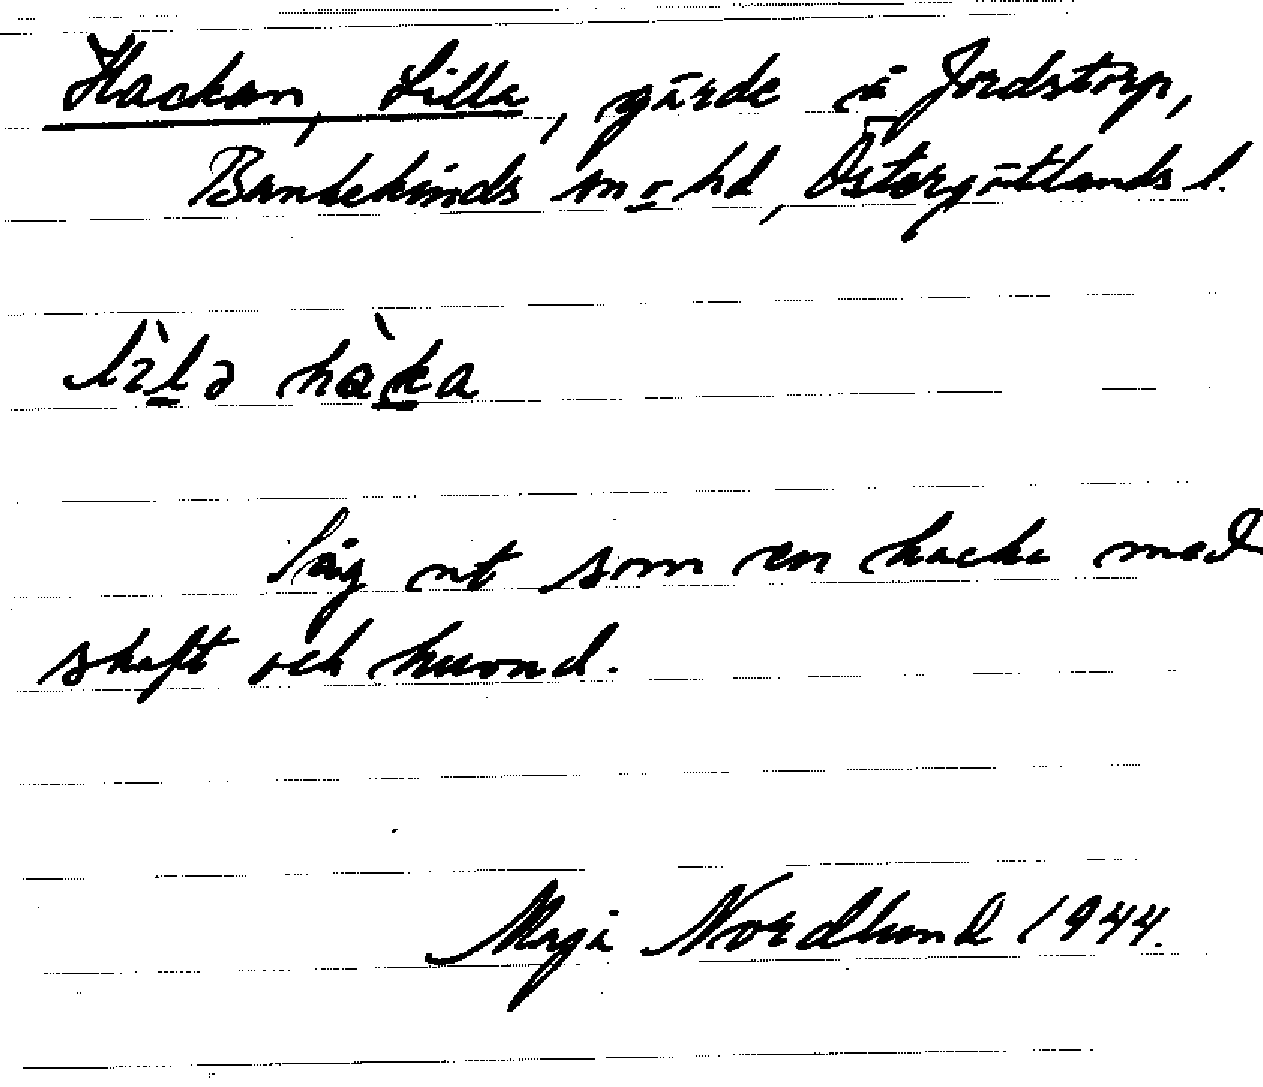 Hackan, Lilla, gärde å Jordstorp,
Bankekinds sn o hd, Östergötlands l.
lìla hàka
Såg ut som en hacka med
skaft och huvud.
Maja Nordlund 1944.